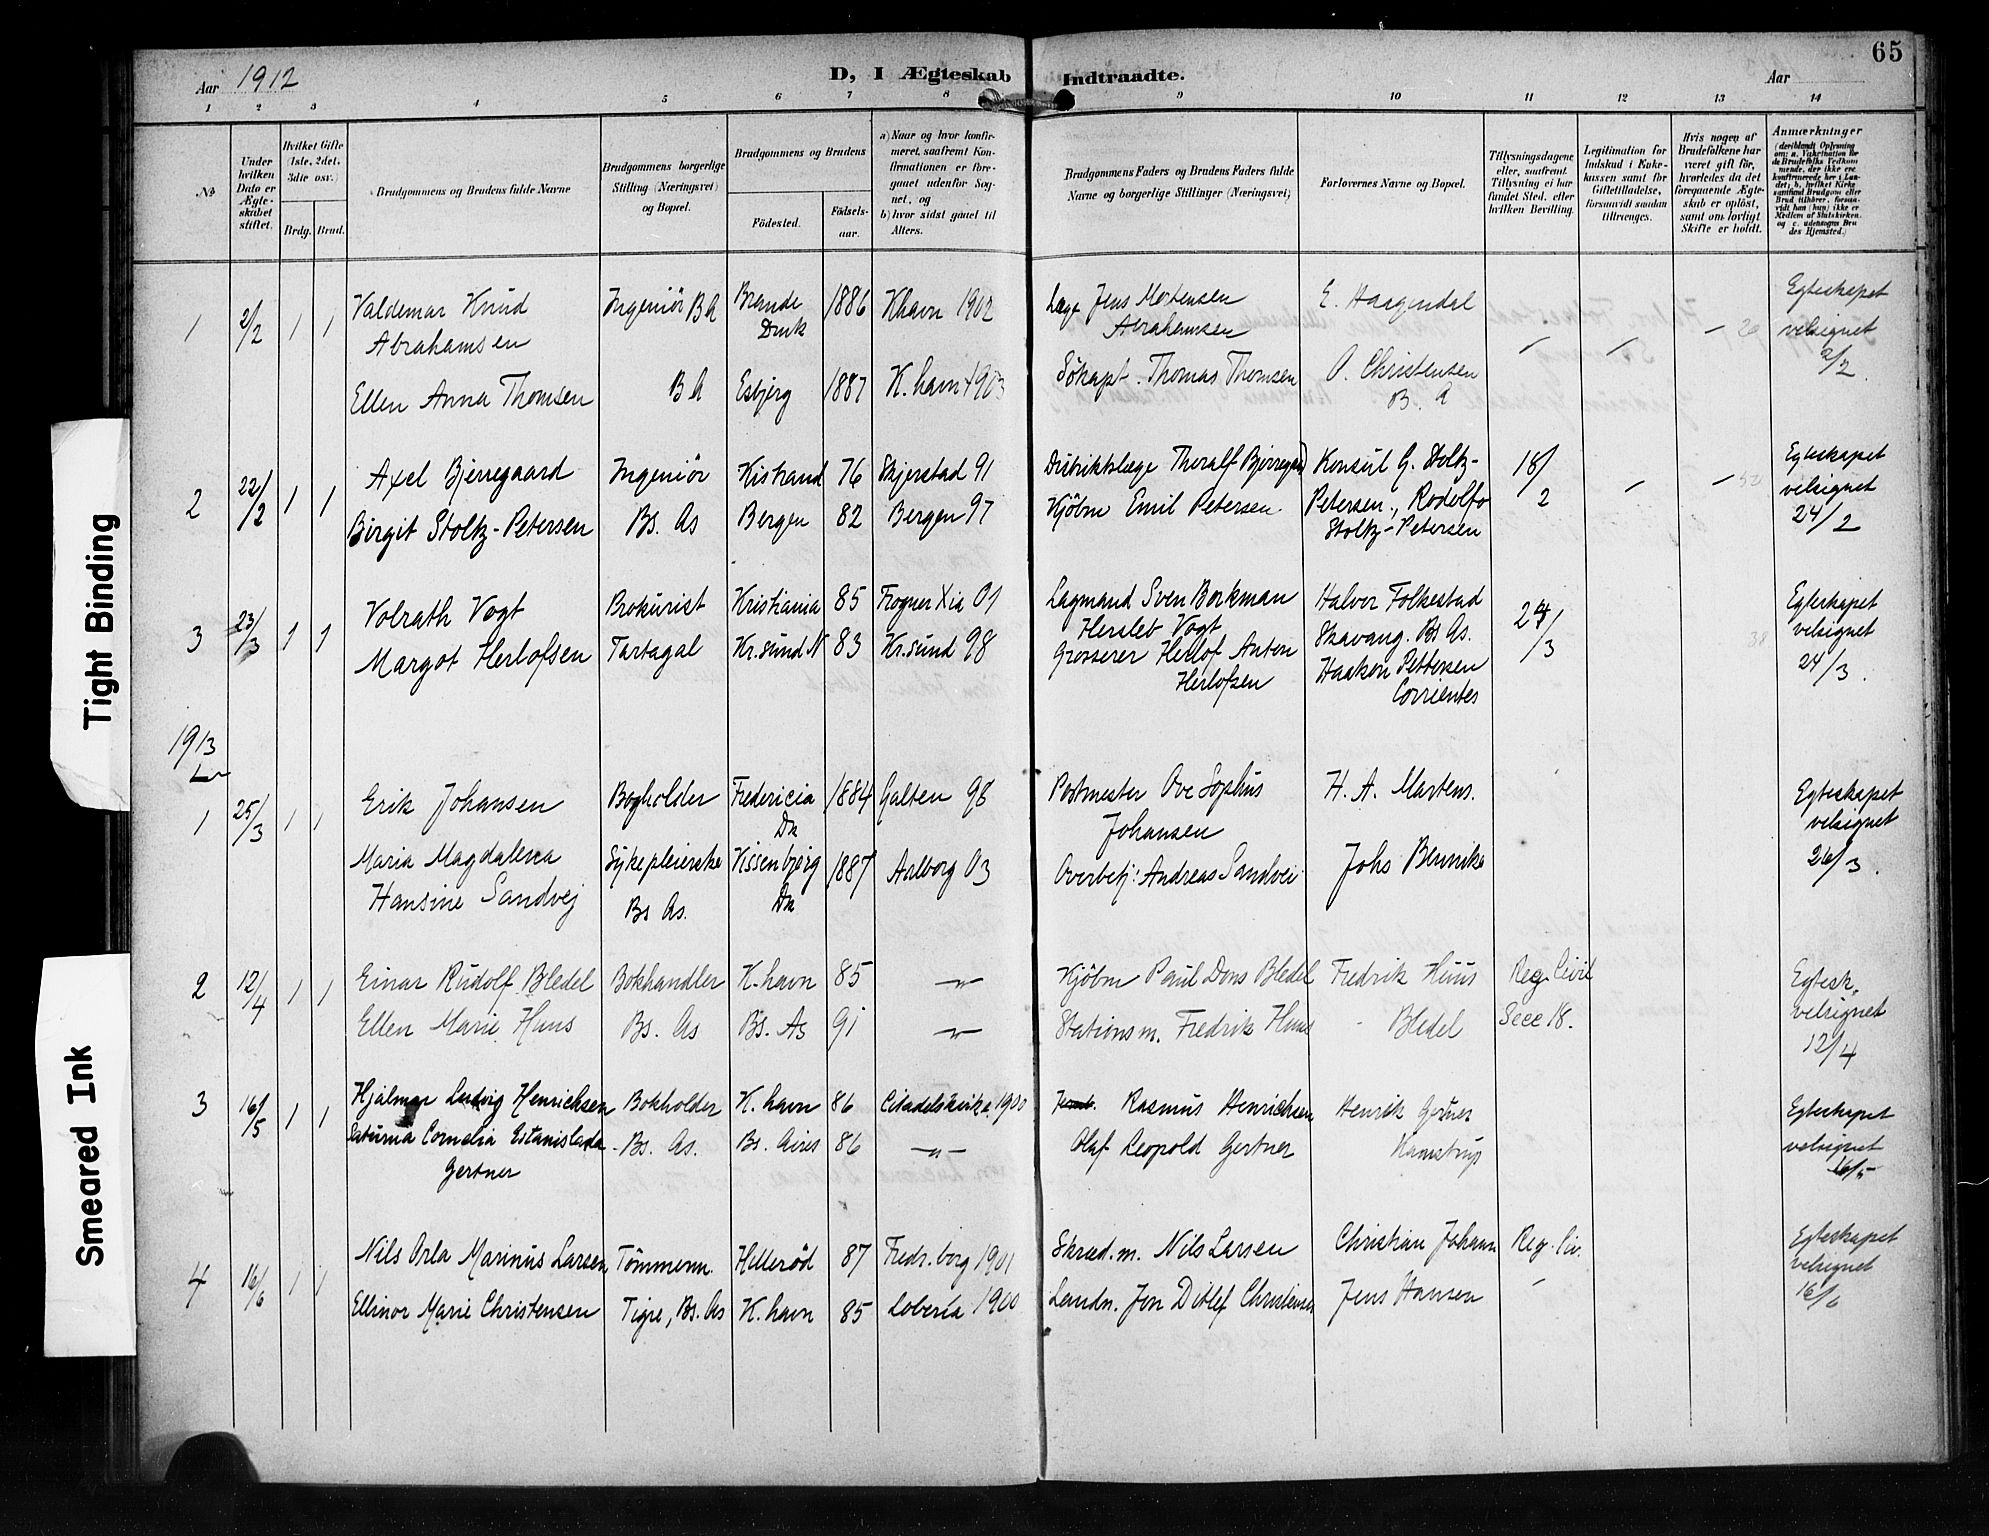 65
Aar 1912
D, I Ægteskab Indtraadte.
Aar
1 2 3 4 5 6 7 8 9 10 11 12 13 14
No
Under hvilken Dato er Ægteskabet stiftet.
Hvilket Gifte (1ste, 2det, 3die osv.)
Brdg. Brud.
Brudgommens og Brudens fulde Navne
Brudgommens borgerlige Stilling (Næringsvei) og Bopæl.
Brudgommens og Brudens
Fødested.
Fødselsaar.
a) Naar og hvor konfirmeret, saafremt Konfirmationen er foregaaet udenfor Sognet, og
b) hvor sidst gaaet til Alters.
Brudgommens Faders og Brudens Faders fulde Navne og borgerlige Stillinger (Næringsvei)
Forlovernes Navne og Bopæl.
Tillysningsdagene eller, saafremt Tillysning ei har fundet Sted, efter hvilken Bevilling.
Legitimation for Indskud i Enkekassen samt for Giftetilladelse, forsaavidt saadan tiltrænges.
Hvis nogen af Brudefolkene har været gift før, hvorledes da det foregaaende Ægteskab er opløst, samt om lovligt Skifte er holdt.
Anmærkninger
1 2/2 1 1 Valdemar Knud Ingeniör BA Brande 1886 Khavn 1902 Læge Jens Mortensen E. Haagendal Egteskapet
Abrahamsen Dmk Abrahamsen velsignet
Ellen Anna Thomsen BA Esbjerg 1887 K. havn 1903 Sökapt. Thomas Thomsen O. Christensen 2/2
B. A
2 22/2 1 1 Axel Bjerregaard Ingeniör Kistrand 76 Skjerstad 91 Distriktslæge Thoralf Bjerregaard Konsul G. Stoltz- 18/2 Egteskapet
Birgit Stoltz-Petersen Bs. As Bergen 82 Bergen 97 Kjöbm Emil Petersen. Petersen., Rodolfo velsignet
Stoltz-Petersen 24/2
3 23/3 1 1 Volrath Vogt Prokurist Kristiania 85 Frogner Xia 01 Lagmand Sven Borkman Halvor Folkestad 24/3 Egteskapet
Hersleb Vogt Stavang. Bs As. velsignet
Margot Herlofsen Tartagal Kr.sund N 83 Kr.sund 98 Grosserer Herlof Anton Haakon Pettersen 24/3.
Herlofsen Corrientes
1913
1 25/3 1 1 Erik Johansen Bogholder Fredericia 1884 Galten 98 Postmester Ove Sophus H. A. Martens. Egteskapet
Dk Johansen velsignet
Maria Magdalena Sykepleierske Vissenbjerg 1887 Aalborg 03 Overbetj: Andreas Sandvei Johs Bennike 26/3.
Hansine Sandvej Bs As. Dk
2 12/4 1 1 Einar Rudolf Bledel Bokhandler K. havn 85 -"- Kjöbm Paul Dons Bledel Fredrik Huus Reg. Civil Egtesk.
Ellen Marie Huus Bs. As Bs. As 91 -"- Stationsm. Fredrik Huus - Bledel Secc 18. velsignet
12/4
3 16/5 1 1 Hjalmar Ludvig Henrichsen Bokholder K. havn 86 Citadelskirke. 1900 Rasmus Henrichsen Henrik Gertner Egteskapet
Saturna Cornelia Estanislada Bs. As. Bs. Aires 86 -"- Olaf Leopold Gertner velsignet
Gertner 16/5
4 16/6 1 1 Nils Orla Marinus Larsen Tömmerm. Hillerød 87 Fredr.borg 1901 Skræd.m. Nils Larsen Christian Johann Reg. Civ. Egteskapet
Ellinor Marie Christensen Tigre, Bs. As K. havn 85 Loberia 1900 Landm. Jon Ditlef Christensen Jens Hansen velsignet
16/6
Tight Binding
Smeared Ink